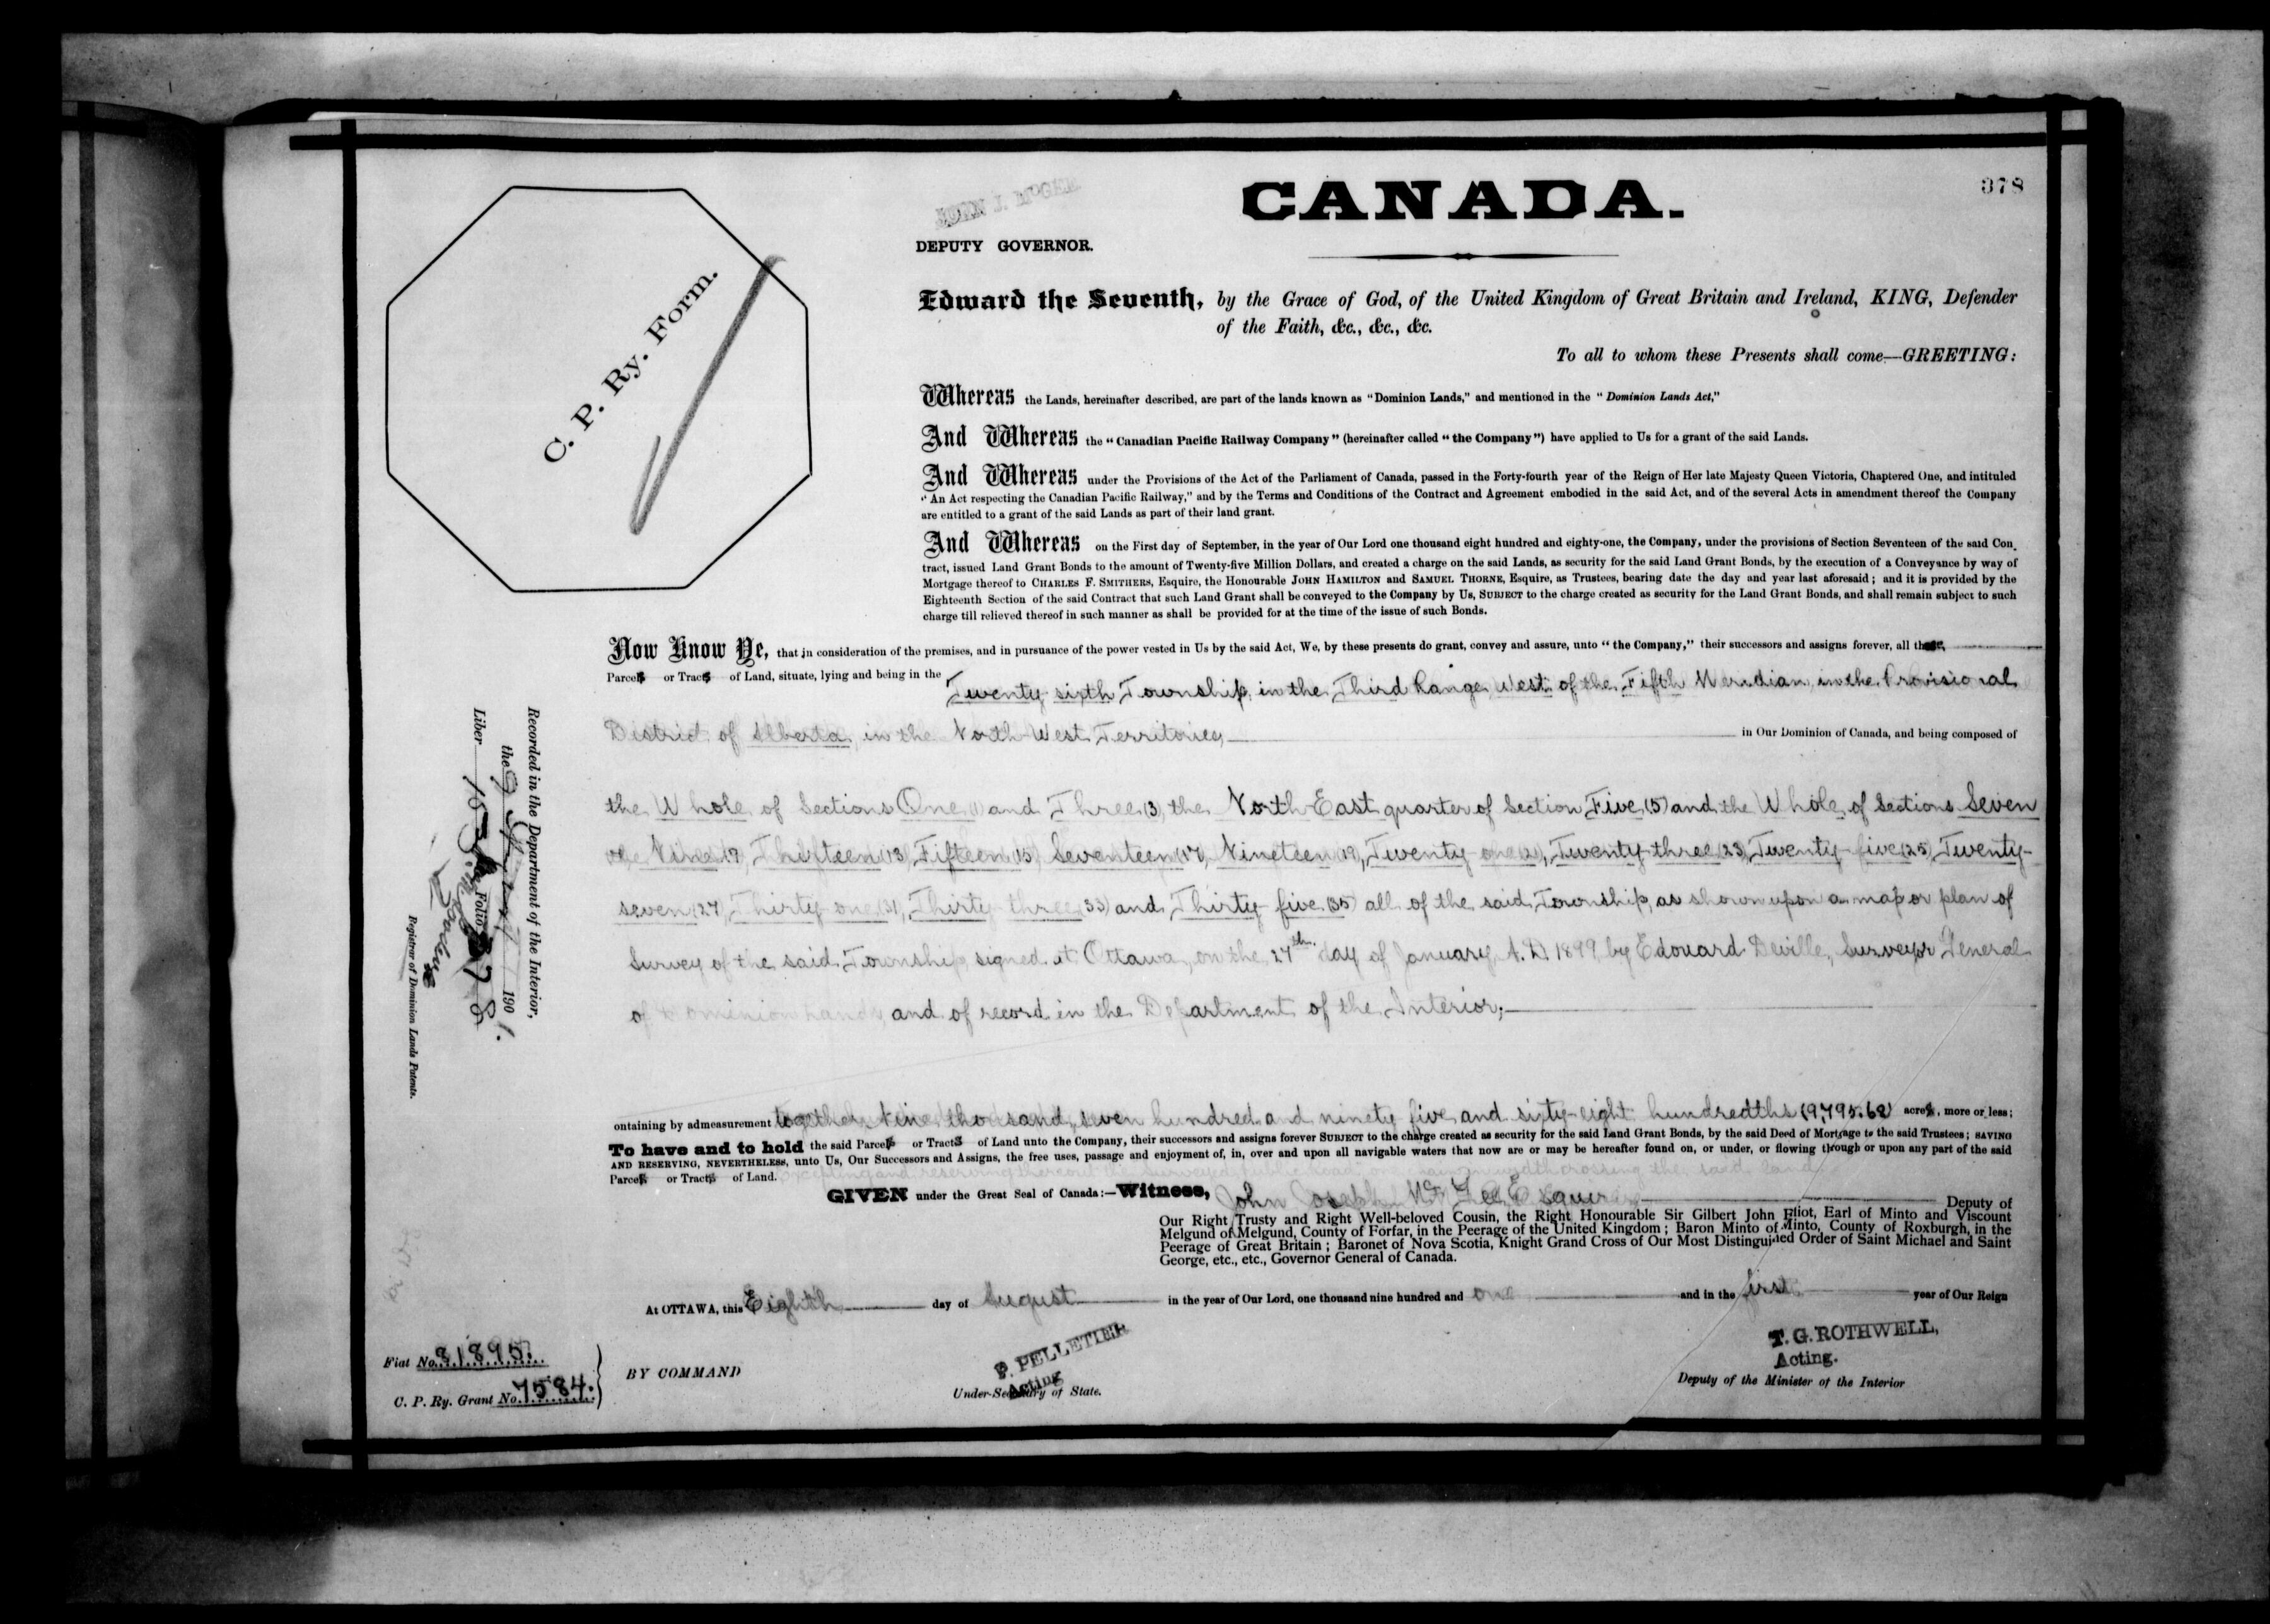 378
CANADA.
JOHN J. McGEE
DEPUTY GOVERNOR.
C. P. Ry. Form.
Edward the Seventh, by the Grace of God, of the United Kingdom of Great Britain and Ireland, KING, Defender
of the Faith, &c., &c., &c.
To all to whom these Presents shall come—GREETING:
Whereas the Lands, hereinafter described, are part of the lands known as "Dominion Lands," and mentioned in the "Dominion Lands Act,"
And Whereas the "Canadian Pacific Railway Company" (hereinafter called "the Company") have applied to Us for a grant of the said Lands.
And Whereas under the Provisions of the Act of the Parliament of Canada, passed in the Forty-fourth year of the Reign of Her late Majesty Queen Victoria, Chaptered One, and intituled
"An Act respecting the Canadian Pacific Railway," and by the Terms and Conditions of the Contract and Agreement embodied in the said Act, and of the several Acts in amendment thereof the Company
are entitled to a grant of the said Lands as part of their land grant.
And Whereas on the First day of September, in the year of Our Lord one thousand eight hundred and eighty-one, the Company, under the provisions of Section Seventeen of the said Con.
tract, issued Land Grant Bonds to the amount of Twenty-five Million Dollars, and created a charge on the said Lands, as security for the said Land Grant Bonds, by the execution of a Conveyance by way of
Mortgage thereof to CHARLES F. SMITHERS, Esquire, the Honourable JOHN HAMILTON and SAMUEL THORNE, Esquire, as Trustees, bearing date the day and year last aforesaid; and it is provided by the
Eighteenth Section of the said Contract that such Land Grant shall be conveyed to the Company by Us, SUBJECT to the charge created as security for the Land Grant Bonds, and shall remain subject to such
charge till relieved thereof in such manner as shall be provided for at the time of the issue of such Bonds.
Now Know Ye, that in consideration of the premises, and in pursuance of the power vested in Us by the said Act, We, by these presents do grant, convey and assure, unto "the Company," their successors and assigns forever, all those
Parcels or Tracts of Land, situate, lying and being in the Twenty-sixth Township, in the Third Range West of the Fifth Meridian, in the Provisional
District of Alberta, in the North-West Territories, in Our Dominion of Canada, and being composed of
the Whole of Sections One (1) and Three (3), the North East quarter of Section Five (5) and the Whole of Sections Seven
(7), Nine (9), Thirteen (13), Fifteen (15), Seventeen (17), Nineteen (19), Twenty-one (21), Twenty-three (23), Twenty-five (25), Twenty-
seven (27), Thirty-one (31), Thirty-three (33) and Thirty-five (35) all of the said Township, as shown upon a map or plan of
Survey of the said Township, signed at Ottawa, on the 27th day of January, A.D. 1899, by Edouard Deville, Surveyor General
of Dominion Lands, and of record in the Department of the Interior;
ontaining by admeasurement together Nine thousand, seven hundred and ninety five and sixty-eight hundredths (9,795.68) acres, more or less;
To have and to hold the said Parcels or Tracts of Land unto the Company, their successors and assigns forever SUBJECT to the charge created as security for the said Land Grant Bonds, by the said Deed of Mortgage to the said Trustees; SAVING
AND RESERVING, NEVERTHELESS, unto Us, Our Successors and Assigns, the free uses, passage and enjoyment of, in, over and upon all navigable waters that now are or may be hereafter found on, or under, or flowing through or upon any part of the said
Parcels or Tracts of Land.
GIVEN under the Great Seal of Canada:—Witness, John Joseph McGee Esquire Deputy of
Our Right Trusty and Right Well-beloved Cousin, the Right Honourable Sir Gilbert John Eliot, Earl of Minto and Viscount
Melgund of Melgund, County of Forfar, in the Peerage of the United Kingdom; Baron Minto of Minto, County of Roxburgh, in the
Peerage of Great Britain; Baronet of Nova Scotia, Knight Grand Cross of Our Most Distinguished Order of Saint Michael and Saint
George, etc., etc., Governor General of Canada.
At OTTAWA, this Eighth day of August in the year of Our Lord, one thousand nine hundred and one and in the first year of Our Reign
Fiat No. 81895.
C. P. Ry. Grant No. 7584.
BY COMMAND
P. PELLETIER
Acting
Under-Secretary of State.
T. G. ROTHWELL,
Acting.
Deputy of the Minister of the Interior
Recorded in the Department of the Interior,
the 9 1901.
Liber 153 Folio 378
Registrar of Dominion Lands Patents.